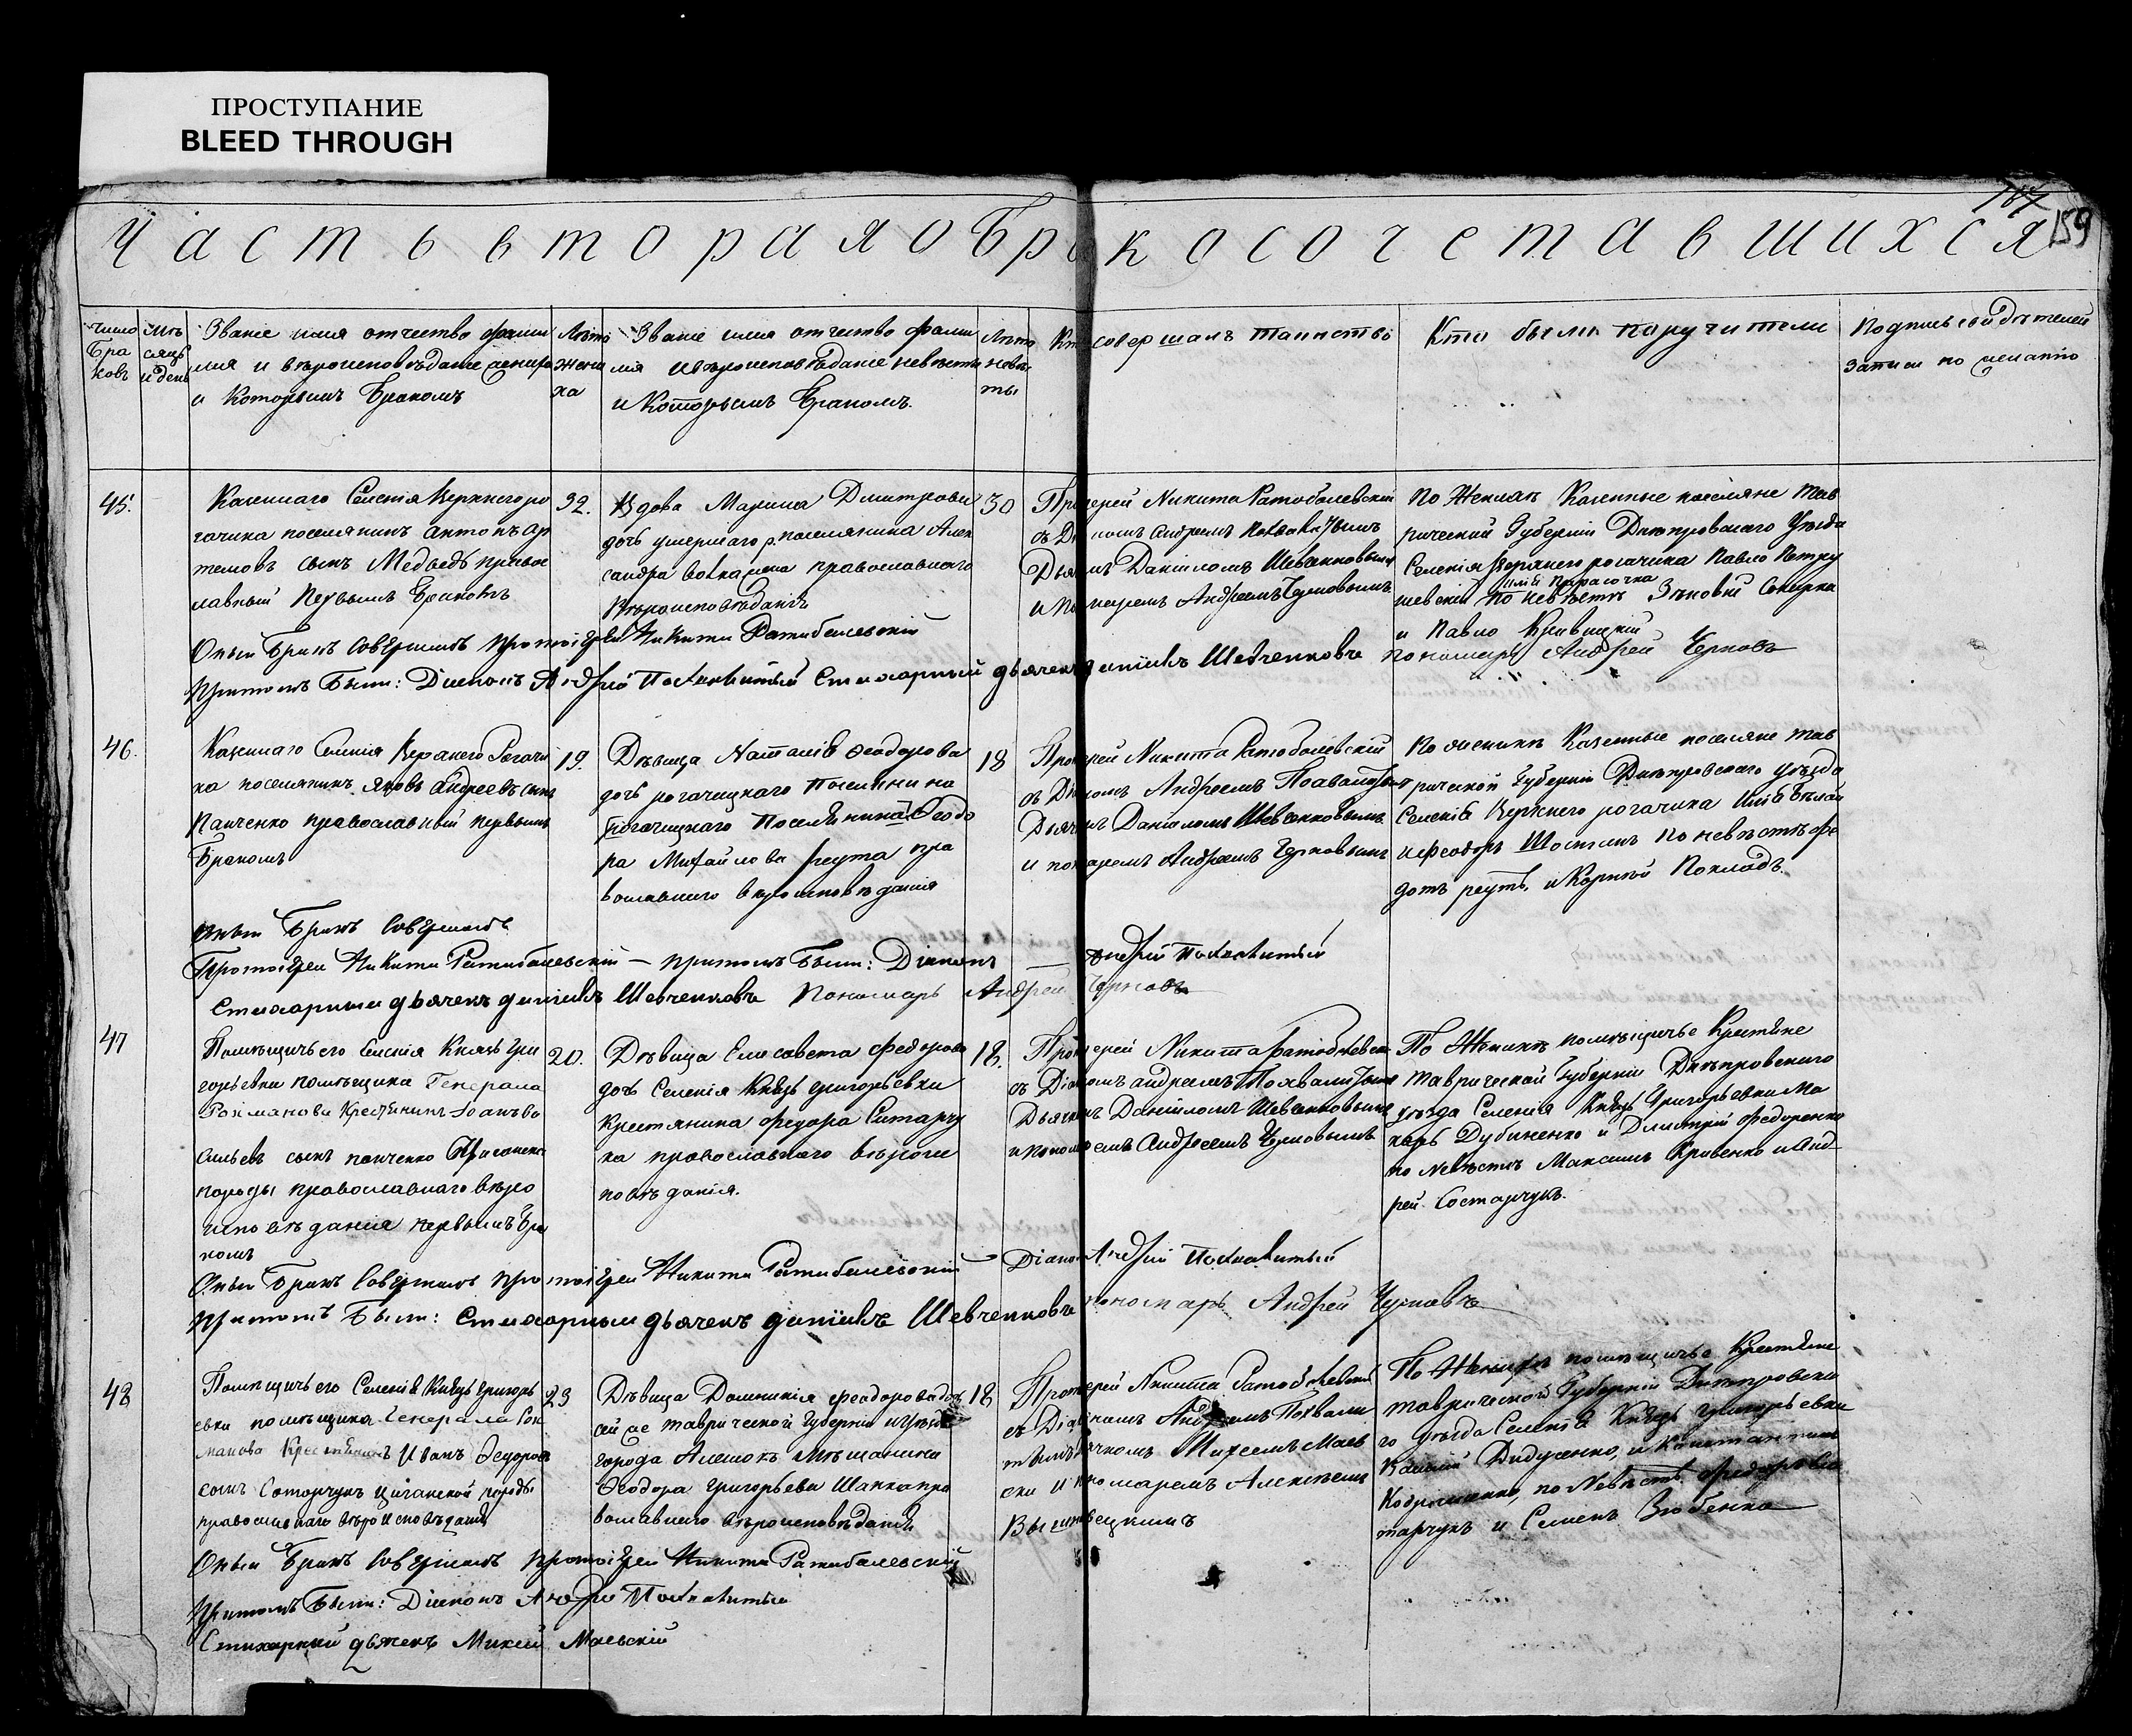 ПРОСТУПАНИЕ
BLEED THROUGH
159
Часть вторая о Бракосочетавшихся
Число Бра ковъ
Мѣ сяцъ и день
Званіе имя отчество фами
лія и вѣроисповѣданіе жениха
и Которымъ Бракомъ
Лѣта жени ха
Званіе имя отчество фами
лія и вѣроисповѣданіе невѣсты
и Которымъ Бракомъ.
Лѣта невѣ сты
Кто совершалъ таинство
Кто были поручители
Подпись свидѣтелей
записи по желанію
45.
Казеннаго Селенія Верхнего ро
гачика поселянинъ Антонъ Ар
темовъ сынъ Медведь правос
лавный Первымъ Бракомъ
32.
Вдова Марина Дмитрова
дочь умершаго поселянина Алек
сандра православнаго
Вѣроисповѣданія
30
Протоіерей Никита Ратобалевскій
съ Діакономъ Андреемъ Похвалитымъ
Дьячкомъ Даніиломъ Шевченковымъ
и Пономаремъ Андреемъ Черновымъ
По Женихѣ Казенные поселяне Тав
рической Губерніи Днѣпровскаго Уѣзда
Селенія Верхнего рогачика Павло Петру
шевскій по невѣстѣ Зѣновій
и Павло Кривицкій
Оный Бракъ Совершилъ протоіерей Никита Ратибалевскій
притомъ Были: Діаконъ Андрей Похвалитый Стихарный дьячекъ Даніилъ Шевченковъ Пономарь Андрей Черновъ
46.
Казеннаго Селенія Верхнего Рогачи
ка поселянинъ Яковъ Андреевъ сынъ
Панченко православный первымъ
Бракомъ
19.
Дѣвица Наталія Феодорова
дочь рогачицкаго Поселянина
Рогачицкаго Поселянина Феодо
ра Михайлова Реута пра
вославнаго вѣроисповѣданія
18
Протоіерей Никита Ратобалевскій
съ Діакономъ Андреемъ Похвалитымъ
Дьячкомъ Даніиломъ Шевченковымъ
и пономаремъ Андреемъ Черновымъ
По женихѣ Казенные поселяне Тав
рической Губерніи Днѣпровскаго уѣзда
Селенія Верхнего рогачика
и Феодоръ по невѣстѣ Фе
дотъ реутъ, и Корній Покладъ.
Оный Бракъ Совершилъ
Протоіерей Никита Ратибалевскій — притомъ Были: Діаконъ — Андрей Похвалитый
Стихарный дьячекъ Даніилъ Шевченковъ Пономарь Андрей Черновъ
47
Помѣщичьего Селенія Князь Гри
горьевки помѣщика Генерала
Рахманова Крестянинъ Іоанъ Ва
сильевъ сынъ панченко
породы православнаго вѣро
исповѣданія первымъ Бра
комъ
20.
Дѣвица Елисавета Федорова
дочь Селенія Князь Григорьевки
Крестянина Федора Ситарчу
ка православнаго вѣроис
повѣданія.
18.
Протоіерей Никита Ратобалевскій
съ Діакономъ Андреемъ Похвалитымъ
Дьячкомъ Даніиломъ Шевченковымъ
и пономаремъ Андреемъ Черновымъ
По Женихѣ помѣщичье Крестяне
Таврической Губерніи Днѣпровскаго
уѣзда Селенія Князь Григорьевки Ма
каръ Дубиненко и Дмитрій Федоренко
по невѣстѣ Максимъ Кривенко и Анд
рей Состарчукъ.
Оный Бракъ Совершилъ протоіерей Никита Ратибалевскій — Діаконъ Андрей Похвалитый
притомъ Были: Стихарный дьячекъ Даніилъ Шевченковъ пономарь Андрей Черновъ
48
Помѣщичьего Селенія Князь Григорь
евки помѣщика Генерала Рах
манова Крестянинъ Иванъ Федоровъ
сынъ Сотарчукъ циганской породы
православнаго вѣроисповѣданія
23
Дѣвица Домникія Феодорова дочь
Таврической Губерніи
города Алешокъ Мѣщанина
Феодора Григорьева пра
вославнаго вѣроисповѣданія
18
Протоіерей Никита Ратобалевскій
съ Діакономъ Андреемъ Похвали
тымъ Дьячкомъ Михеемъ Маев
ски и пономаремъ Алексѣемъ
По Женихѣ помѣщичье Крестяне
Таврической Губерніи Днѣпровска
го уѣзда Селенія Князь Григорьевки
Василій Дидученко, и Константинъ
по невѣстѣ Федоръ Си
тарчукъ и Семенъ
Оный Бракъ Совершилъ протоіерей Никита Ратибалевскій
притомъ Были: Діаконъ Андрей Похвалитый
Стихарный дьячекъ Михей Маевскій